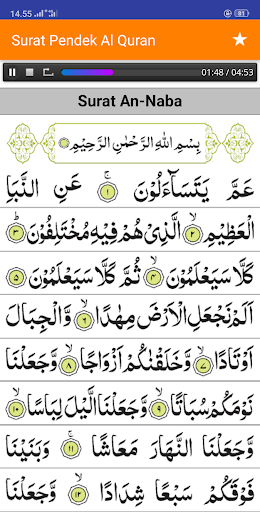 14.55
Surat Pendek Al Quran
01:48 / 04:53
Surat An-Naba
بِسْمِ اللّٰهِ الرَّحْمٰنِ الرَّحِيْمِ
عَمَّ يَتَسَاۤءَلُوْنَ ۚ ١ عَنِ النَّبَاِ
الْعَظِيْمِۙ ٢ الَّذِيْ هُمْ فِيْهِ مُخْتَلِفُوْنَۗ ٣
كَلَّا سَيَعْلَمُوْنَۙ ٤ ثُمَّ كَلَّا سَيَعْلَمُوْنَ ٥
اَلَمْ نَجْعَلِ الْاَرْضَ مِهٰدًاۙ ٦ وَّالْجِبَالَ
اَوْتَادًاۖ ٧ وَّخَلَقْنٰكُمْ اَزْوَاجًاۙ ٨ وَّجَعَلْنَا
نَوْمَكُمْ سُبَاتًاۙ ٩ وَّجَعَلْنَا الَّيْلَ لِبَاسًاۙ ١٠
وَّجَعَلْنَا النَّهَارَ مَعَاشًاۖ ١١ وَبَنَيْنَا
فَوْقَكُمْ سَبْعًا شِدَادًاۙ ١٢ وَّجَعَلْنَا